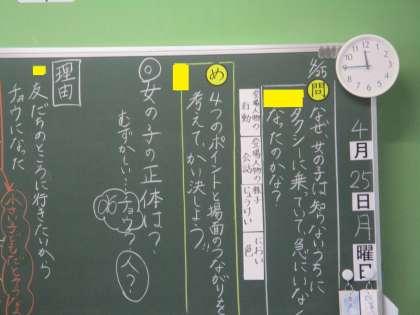 4月25日月曜日
4/25
問
なぜ、女の子は知らないうちに
タクシーに乗っていて、急にいなく
なったのかな?
登場人物の様子
行動
会話
じょうけい
におい
色
め
4つのポイントと場面のつながりを
考えて、かい決しよう!!
◎女の子の正体は?
むずかしい・・
チョウ?
人?
理由
友だちのところに行きたいから
チョウになった